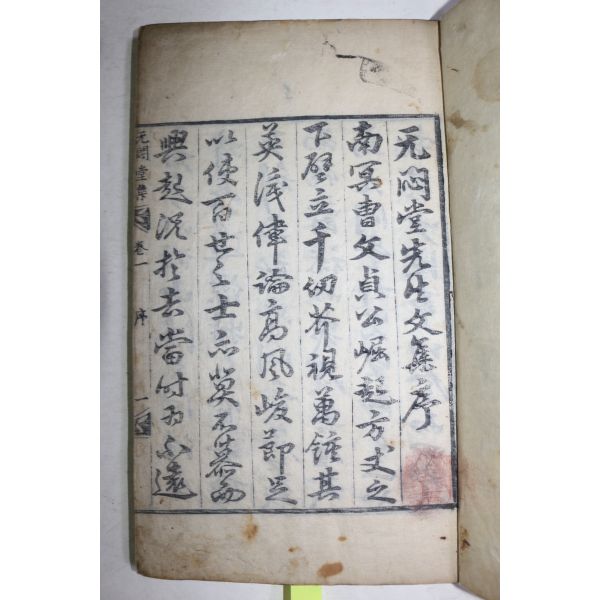 无悶堂先生文集序
南冥曺文貞公崛起方丈之
下壁立千仞芥視萬鍾其
英識偉論高風峻節足
以使百世之士亦莫不慕而
興起況於去當時為不遠
无悶堂集
卷一
序
一